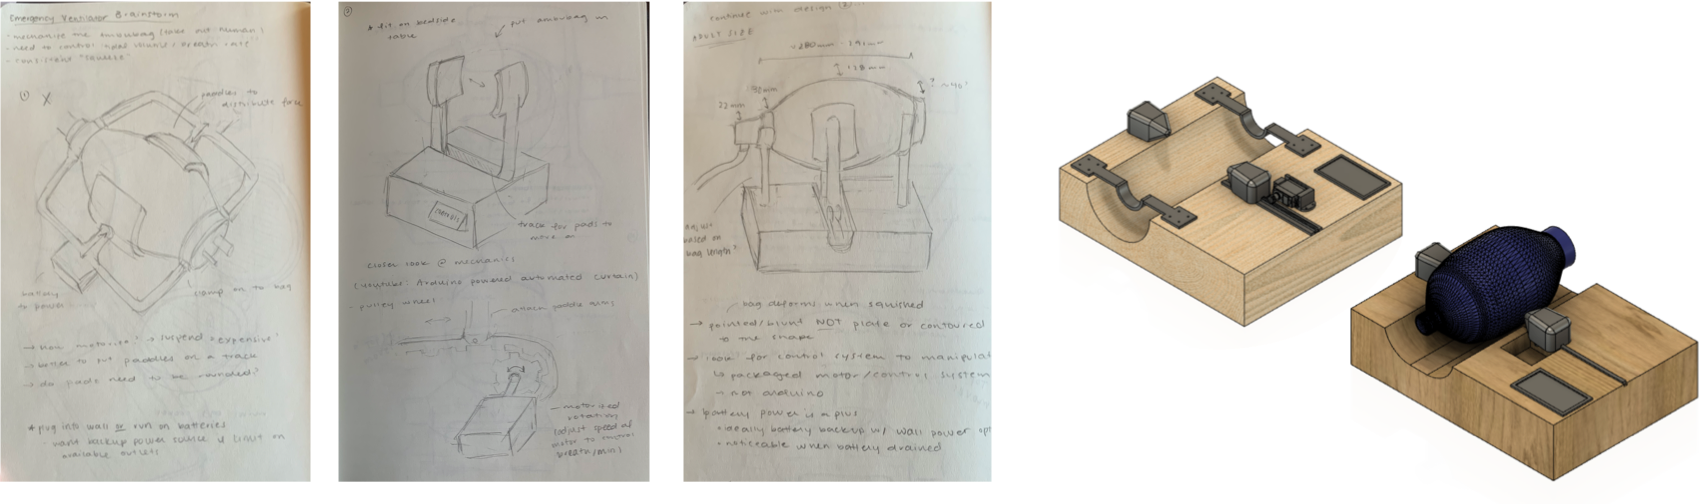 Emergency Ventilator Brainstorm
· mechanize the ambubag (take out human)
· need to control tidal volume / breath rate
· consistent "squeeze"
① X
paddles to
distribute force
battery
to power
clamp on to bag
→ how motorize? → suspend = expensive
→ better to put paddles on a track
→ do pads need to be rounded?
* plug into wall or run on batteries
- want backup power source if limit on
available outlets
②
* fit on bedside
table
put ambubag in
track for pads to
move on
closer look @ mechanics
(youtube: Arduino powered automated curtain)
- pulley wheel
attach paddle arms
motorized
rotation
(adjust speed of
motor to control
breath/min)
continue with design
ADULT SIZE
22 mm
adjust
based on
bag length?
bag deforms when squished
→ pointed/blunt NOT plate or contoured
to the shape
→ look for control system to manipulat
↳ packaged motor/control system
- not arduino
→ battery power is a plus
• ideally battery backup w/ wall power op
• noticeable when battery drained